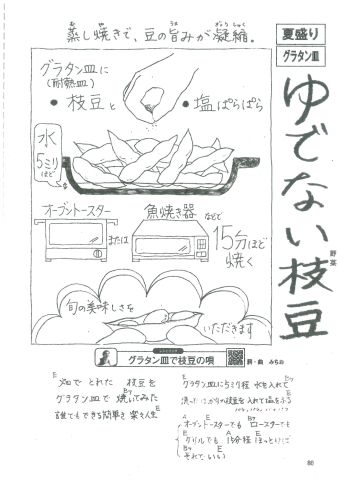 蒸し焼きで、豆の旨みが凝縮。
夏盛り
グラタン皿
ゆでない枝豆
野菜
グラタン皿に
(耐熱皿)
・枝豆と ・塩ぱらぱら
水
5ミリ
ほど
オーブントースター
または
魚焼き器 などで
15分ほど
焼く
旬の美味しさを
いただきます
グラタン皿で枝豆の唄
詞・曲 みちお
E
畑で とれた 枝豆を
E B7
グラタン皿で 焼いてみた
誰でもできる簡単さ 楽々人生
E
グラタン皿に5ミリ程 水を入れて
A E B7
オーブントースターでも ロースターでも
E A E
グリルでも 15分程 ほっとけば
B7 E
それでいい
80